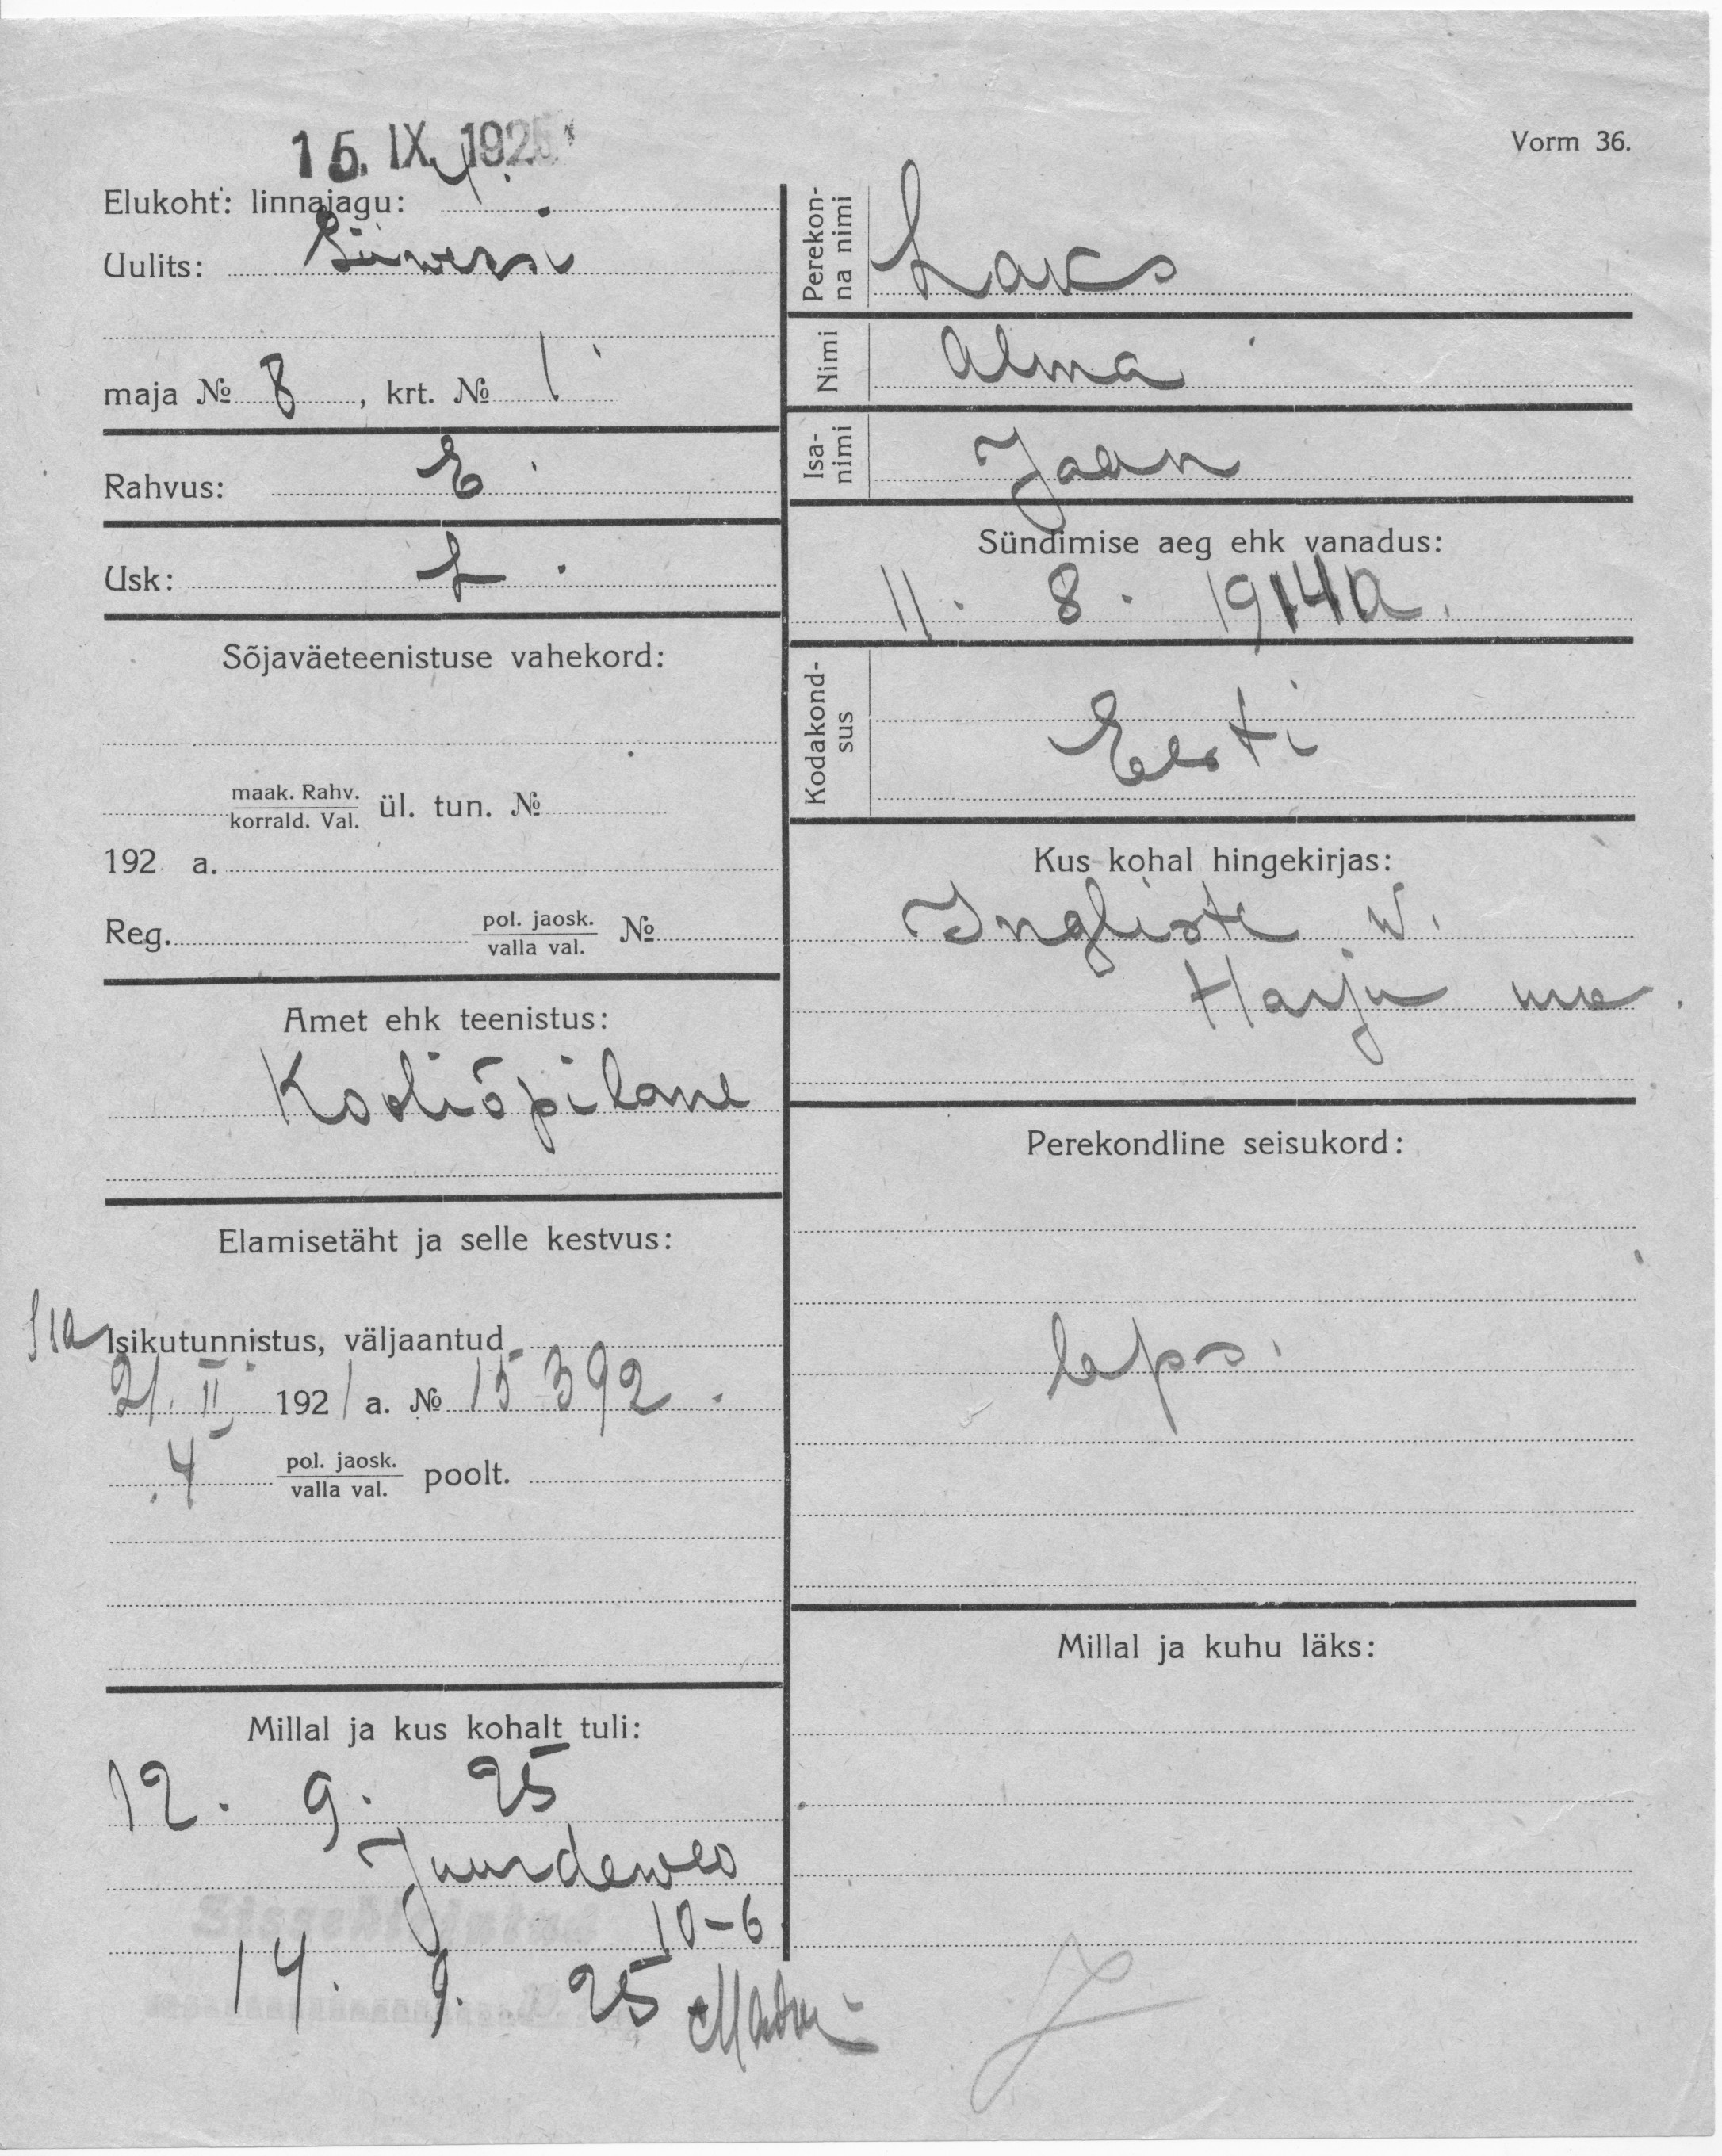 Vorm 36.
15. IX. 1925
Elukoht: linnajagu: 4.
Uulits:
maja № 8, krt. № 1
Rahvus: E.
Usk: L.
Sõjaväeteenistuse vahekord:
maak. Rahv.
korrald. Val. ül. tun. №
192 a.
Reg. pol. jaosk.
valla val. №
Amet ehk teenistus:
Kooliõpilane
Elamisetäht ja selle kestvus:
Isa Isikutunnistus, väljaantud
21. II 1921 a. № 15392.
4 pol. jaosk.
valla val. poolt.
Millal ja kus kohalt tuli:
12. 9. 25
Juurdeveo
10-6
14. 9. 25
Perekon-
na nimi Laks
Nimi Alma
Isa-
nimi Jaan
Sündimise aeg ehk vanadus:
11. 8. 1914 a.
Kodakond-
sus Eesti
Kus kohal hingekirjas:
Ingliste w.
Harju
Perekondline seisukord:
laps.
Millal ja kuhu läks: